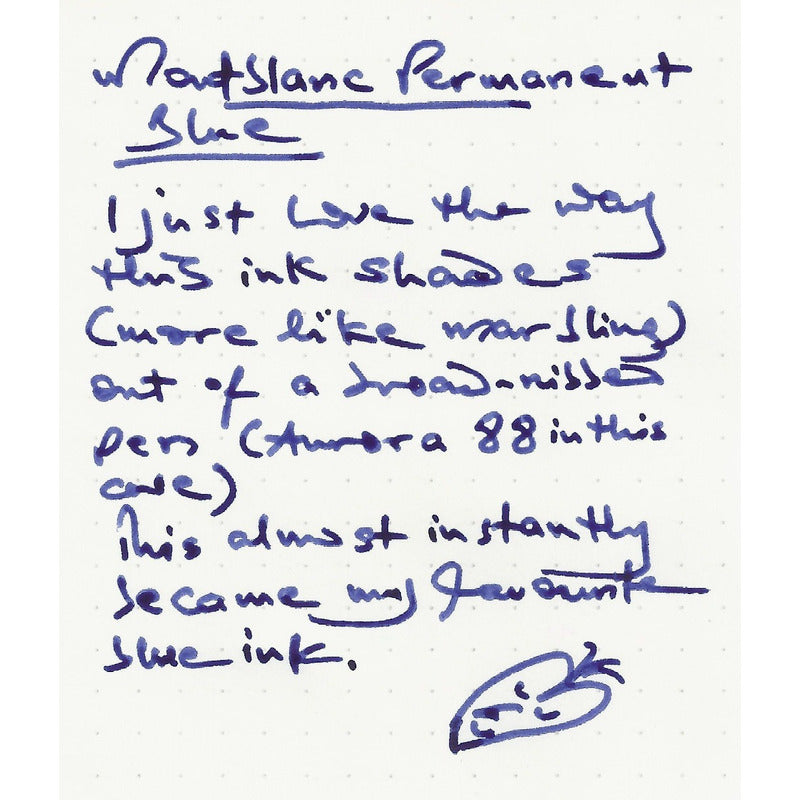 Montblanc Permanent
Blue
I just love the way
this ink shades
(more like marbling)
out of a broad-nibbed
pen (Aurora 88 in this
case)
This almost instantly
became my favourite
blue ink.